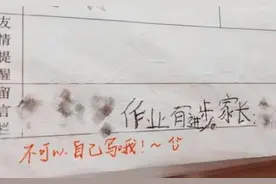 友情提醒留言栏
作业有进步家长:
不可以自己写哦!~